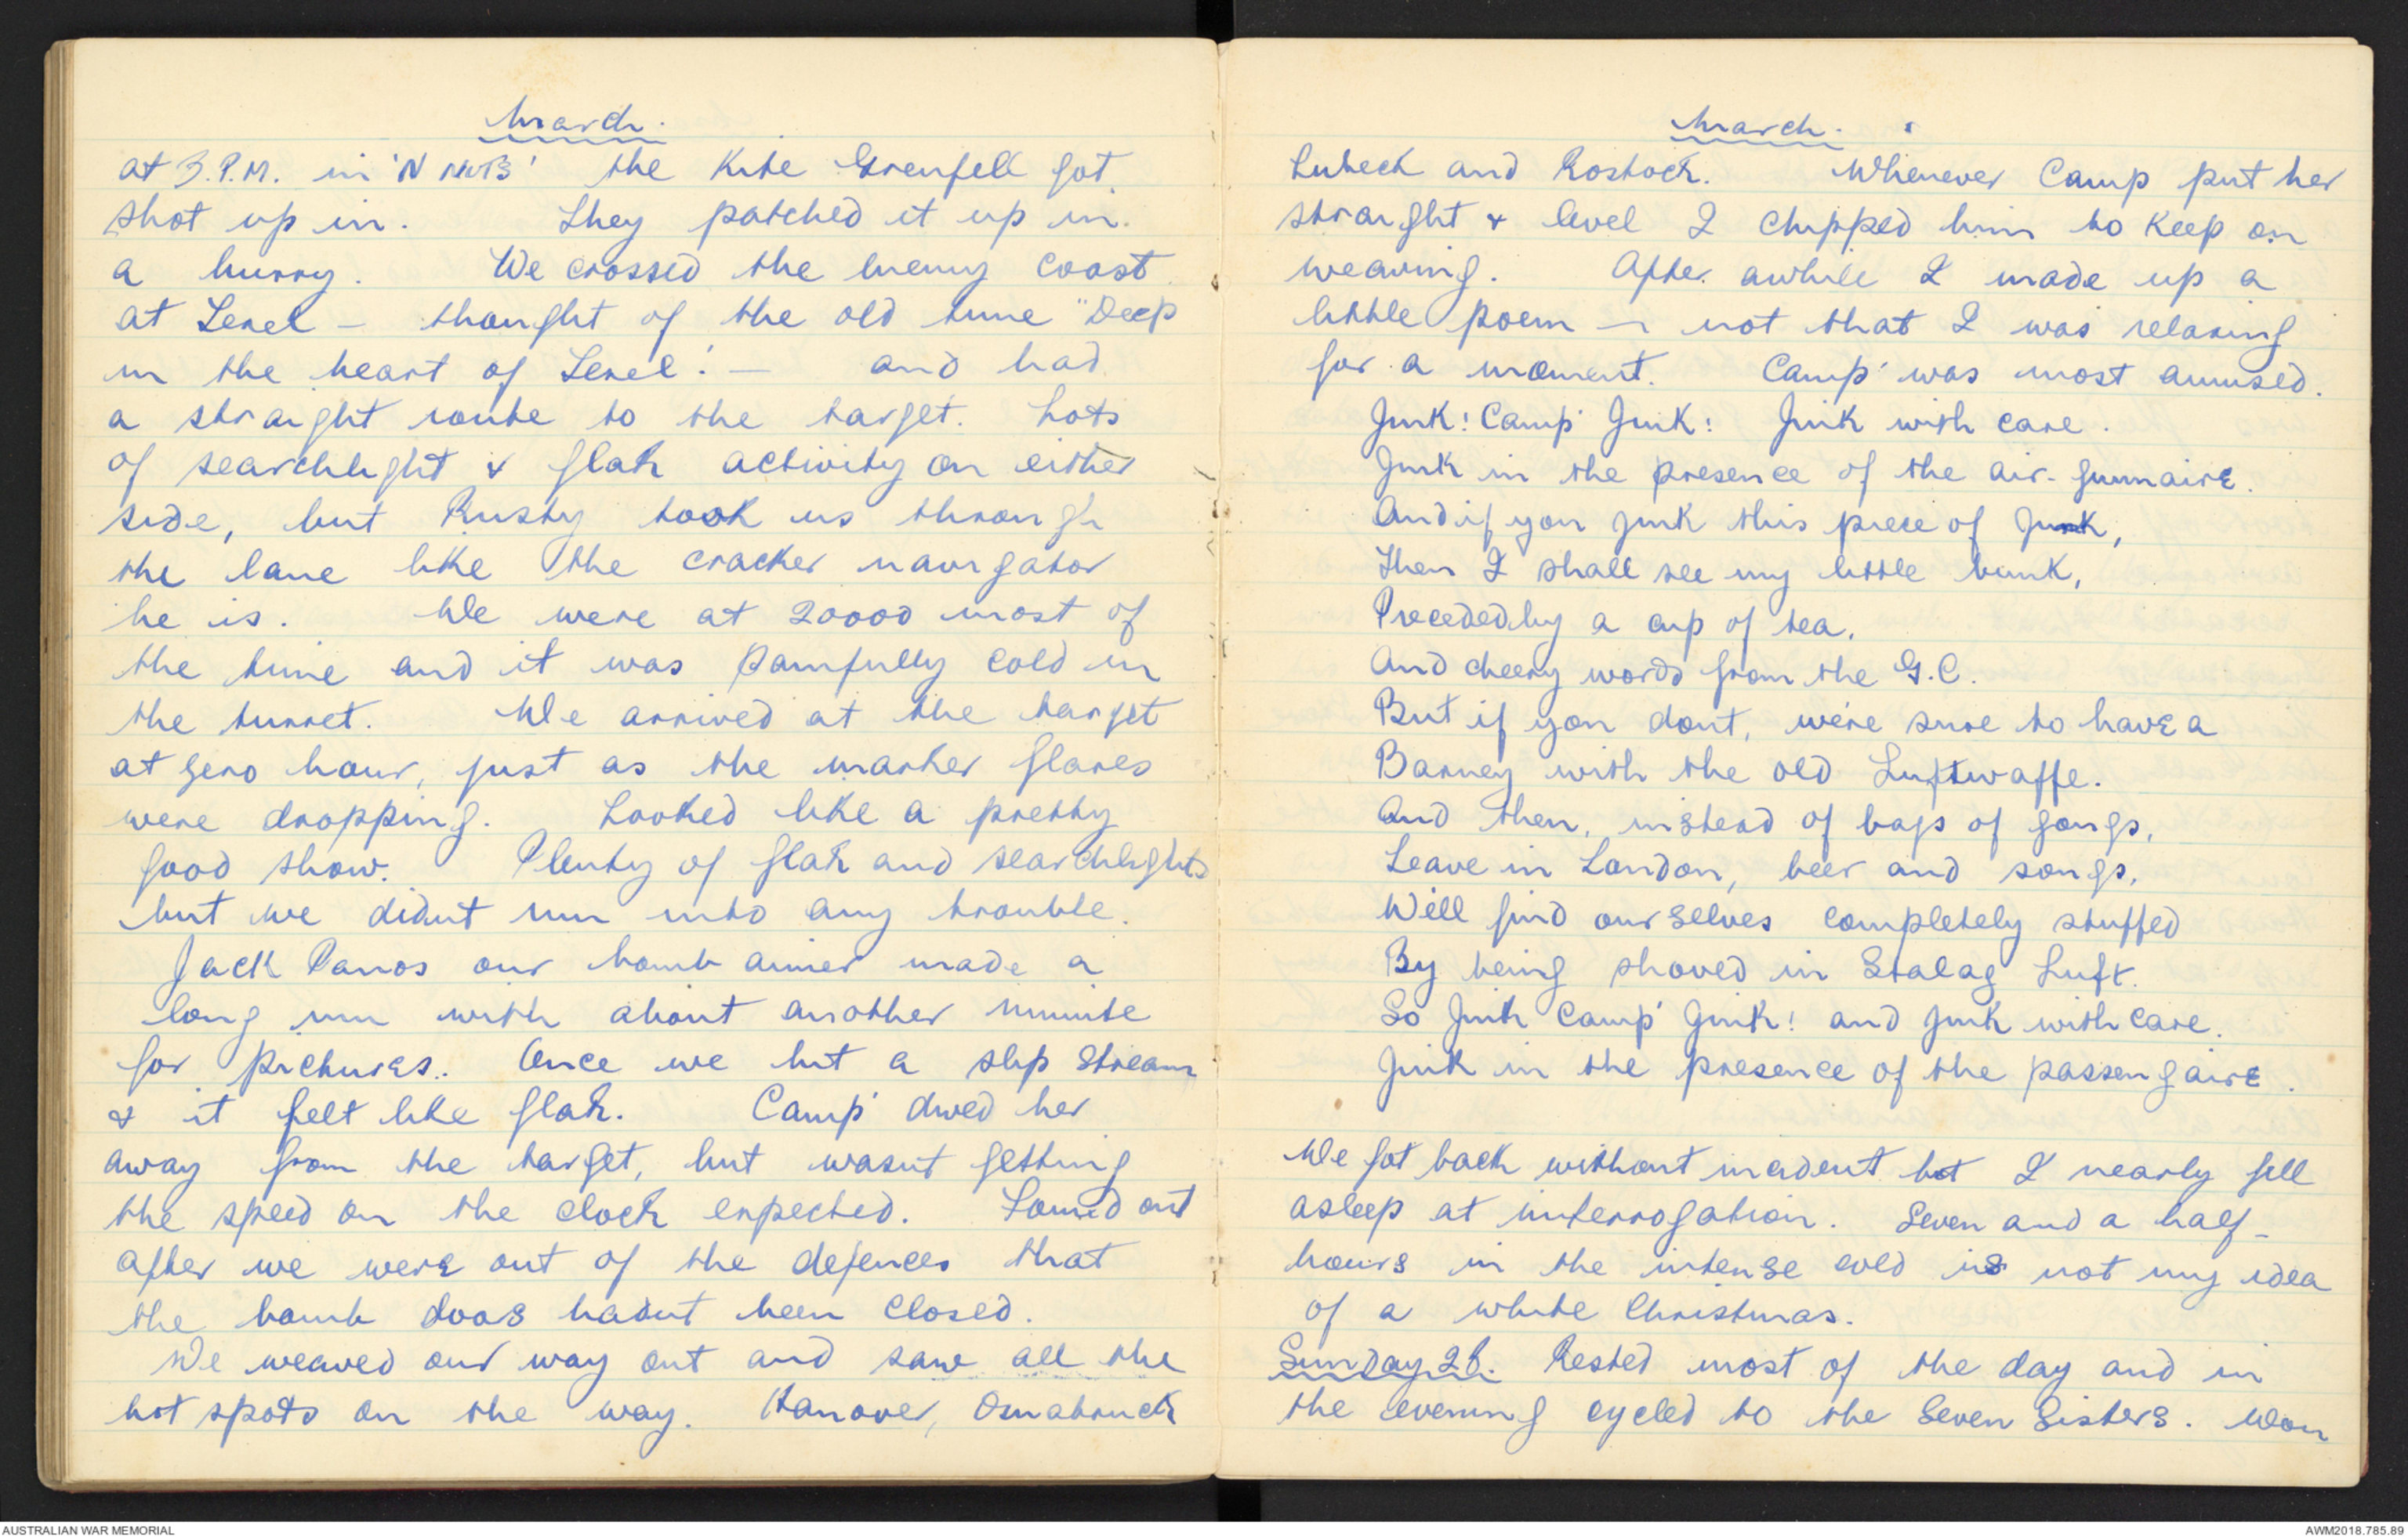 March.
at 3.P.M. in 'N NUTS' the kite Grenfell got
shot up in. They patched it up in
a hurry. We crossed the enemy coast
at Texel – thought of the old tune "Deep
in the heart of Texel! – and had
a straight route to the target. Lots
of searchlight & flak activity on either
side, but Rusty took us through
the lane like the cracker navigator
he is. We were at 20000 most of
the time and it was painfully cold in
the turret. We arrived at the target
at zero hour, just as the marker flares
were dropping. Looked like a pretty
good show. Plenty of flak and searchlights
but we didnt run into any trouble.
Jack Panos our bomb aimer made a
long run with about another minute
for pictures. Once we hit a slip stream
& it felt like flak. Camp' dived her
away from the target, but wasnt getting
the speed on the clock expected. Found out
after we were out of the defences that
the bomb doors hadnt been closed.
We weaved our way out and saw all the
hot spots on the way. Hanover, Osnabruck
March.
Lubeck and Rostock. Whenever Camp put her
straight & level I chipped him to keep on
weaving. After awhile I made up a
little poem – not that I was relaxing
for a moment. Camp' was most amused.
Jink! Camp' Jink! Jink with care.
Jink in the presence of the air-gunnaire.
And if you jink this piece of junk,
Then I shall see my little bunk,
Preceded by a cup of tea.
And cheery words from the G.C.
But if you dont, we're sure to have a
Barney with the old Luftwaffe.
And then, instead of bags of gongs,
Leave in London, beer and songs,
We'll find ourselves completely stuffed
By being shoved in Stalag Luft.
So Jink Camp' Jink! and jink with care.
Jink in the presence of the passengaire.
We got back without incident but I nearly fell
asleep at interrogation. Seven and a half
hours in the intense cold is not my idea
of a white Christmas.
Sunday 28. Rested most of the day and in
the evening cycled to the Seven Sisters. Won
AUSTRALIAN WAR MEMORIAL
AWM2018.785.89